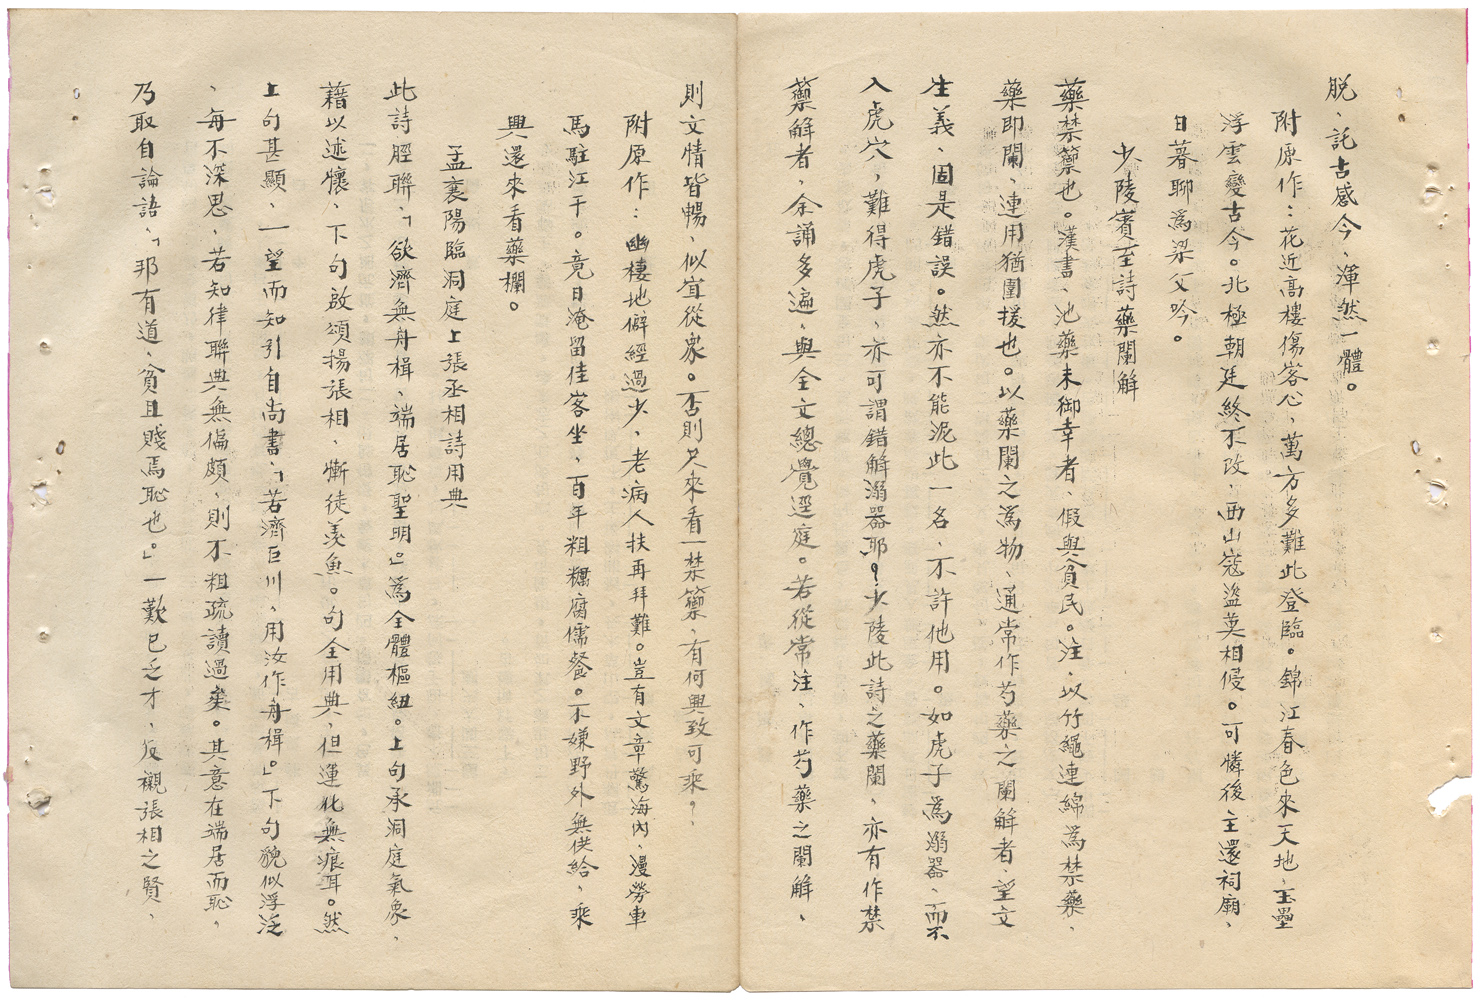 脫、託古感今、渾然一體。
附原作：花近高樓傷客心，萬方多難此登臨。錦江春色來天地，玉壘
浮雲變古今。北極朝廷終不改，西山寇盜莫相侵。可憐後主還祠廟，
日暮聊為梁父吟。
少陵賓至詩藥闌解
藥禁籞也。漢書、池籞未御幸者、假與貧民。注、以竹繩連綿為禁籞、
藥即闌、連用猶圍援也。以藥闌之為物、通常作芍藥之闌解者、望文
生義、固是錯誤。然亦不能泥此一名、不許他用。如虎子為溺器、而不
入虎穴，難得虎子、亦可謂錯解溺器耶？少陵此詩之藥闌、亦有作禁
籞解者、余誦多遍、與全文總覺逕庭。若從常注、作芍藥之闌解、
則文情皆暢、似宜從衆。否則只來看一禁籞、有何興致可乘？
附原作：幽棲地僻經過少，老病人扶再拜難。豈有文章驚海內，漫勞車
馬駐江干。竟日淹留佳客坐，百年粗糲腐儒餐。不嫌野外無供給，乘
興還來看藥欄。
孟襄陽臨洞庭上張丞相詩用典
此詩脛聯、「欲濟無舟楫、端居恥聖明。」為全體樞紐。上句承洞庭氣象、
藉以述懷、下句啟頌揚張相、慚徒羨魚。句全用典、但運化無痕耳。然
上句甚顯、一望而知引自尚書、「若濟巨川、用汝作舟楫。」下句貌似浮泛
、每不深思、若知律聯典無偏頗、則不粗疏讀過矣。其意在端居而恥、
乃取自論語、「邦有道、貧且賤焉恥也。」一歎已乏才、反襯張相之賢、